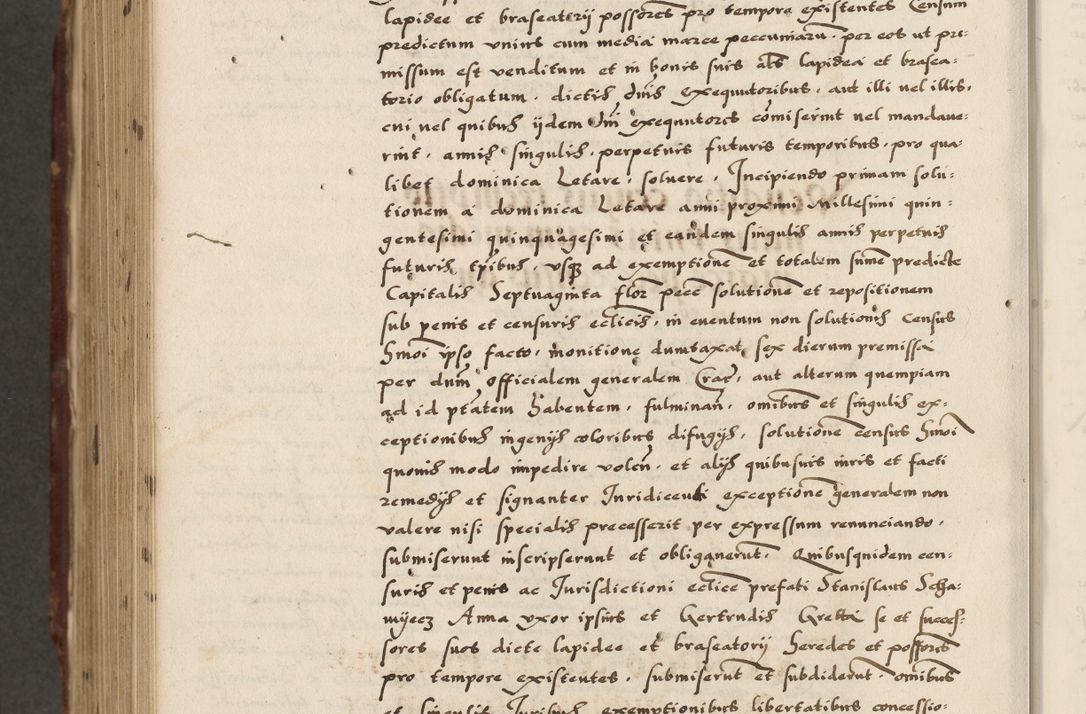 lapidee et braseatorij possores pro tempore existentes Censum
predictum unius cum media marce peccuniaru. per eos ut pre:
missum est venditum et in bonis suis als lapidea et brasea:
torio obligatum. dictis dnis exequutoribus. aut illi vel illis.
cui vel quibus ijdem dni exequutores comiserint vel mandave:
rint. annis singulis. perpetuis futuris temporibus. pro qua:
libet dominica Letare. solvere. Incipiendo primam solu:
tionem a dominica Letare anni proximi Millesimi quin:
gentesimi quinquagesimi et eandem singulis annis perpetuis
futuris tpibus. usq ad exemptione et totalem sume predicte
Capitalis Septuaginta flor pece solutione et repositionem
sub penis et censuris ecclicis. in eventum non solutionis Census
hmoi ipso facto. monitione dumtaxat sex dierum premissa
per dum officialem generalem Crac. aut alterum quempiam
ad id ptatem habentem. fulminan. omibus et singulis ex:
ceptionibus ingenijs coloribus difugijs. solutione census hmoi
quovis modo impedire volen. et alijs quibusvis iuris et facti
remedijs et signanter Iuridicenti exceptione generalem non
valere nisi specialis precesserit per expressum renunciando.
submiserunt inscripserunt et obligaverut. Quibusquidem cen:
suris et penis ac Iurisdictioni ecclice prefati Stanislaus Scha:
myecz Anna uxor ipsius et Gertrudis Gretka se et succes:
sores suos dicte lapidee et braseatorij heredes et possores
pro tempore existentes. submiserut et subdiderut. omibus
et singulis Iuribus exemptionibus libertatibus concessio: